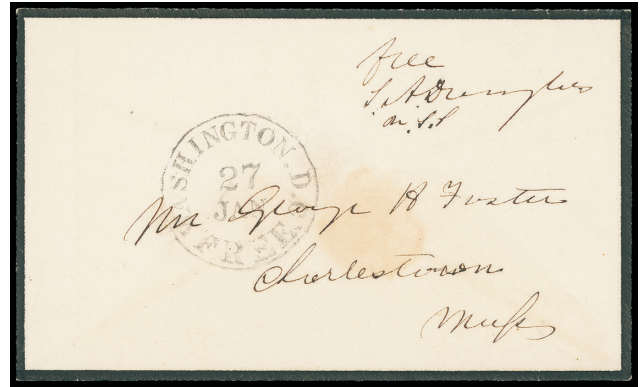 free
S. A. Douglas
U.S.S
WASHINGTON. D. C.
27
JAN
FREE
Mr George H Foster
Charlestown
Mass